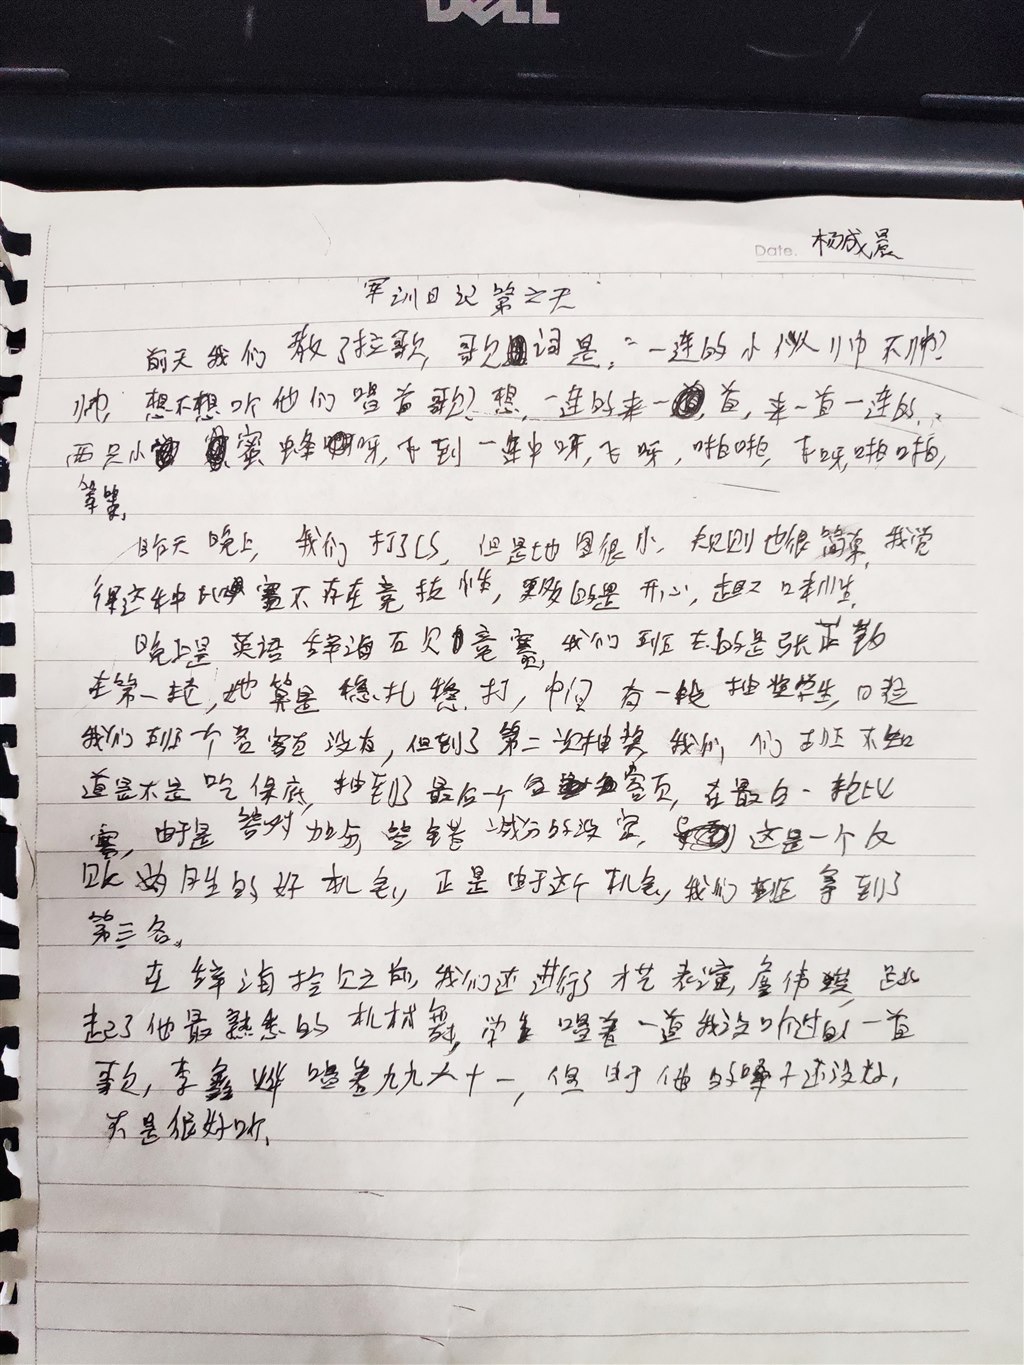 DELL
Date. 杨成晨
军训日记第之天
前天我们教了拉歌,歌词是:"一连的小伙帅不帅?
帅,想不想听他们唱首歌?想,一连的来一首,来一首一连的"
两只小蜜蜂呀,飞到一连中呀,飞呀,啪啪,飞呀,啪啪,
等等。
昨天晚上,我们打了CS,但是地图很小,规则也很简单,我觉
得这种比赛不存在竞技性,更多的是开心,趣味性。
晚上是英语辞海拾贝竞赛,我们班去的是张芷
在第一轮,她算是稳扎稳打,中间有一轮抽奖学生,
我们班一个答案页没有,但到了第二次抽奖,我们,们班不知
道是不是吃保底,抽到了最后一个页,在最后一轮比
赛,由于是答对加分,答错减分的设定,这是一个反
败为胜的好机会,正是由于这个机会,我们班拿到了
第三名。
在辞海拾贝之前,我们还进行了才艺表演,詹伟跳
起了他最熟悉的机械舞,学生唱着一首我没听过的一首
歌,李鑫烨唱着九九八十一,但由于他的嗓子还没好,
不是很好听。